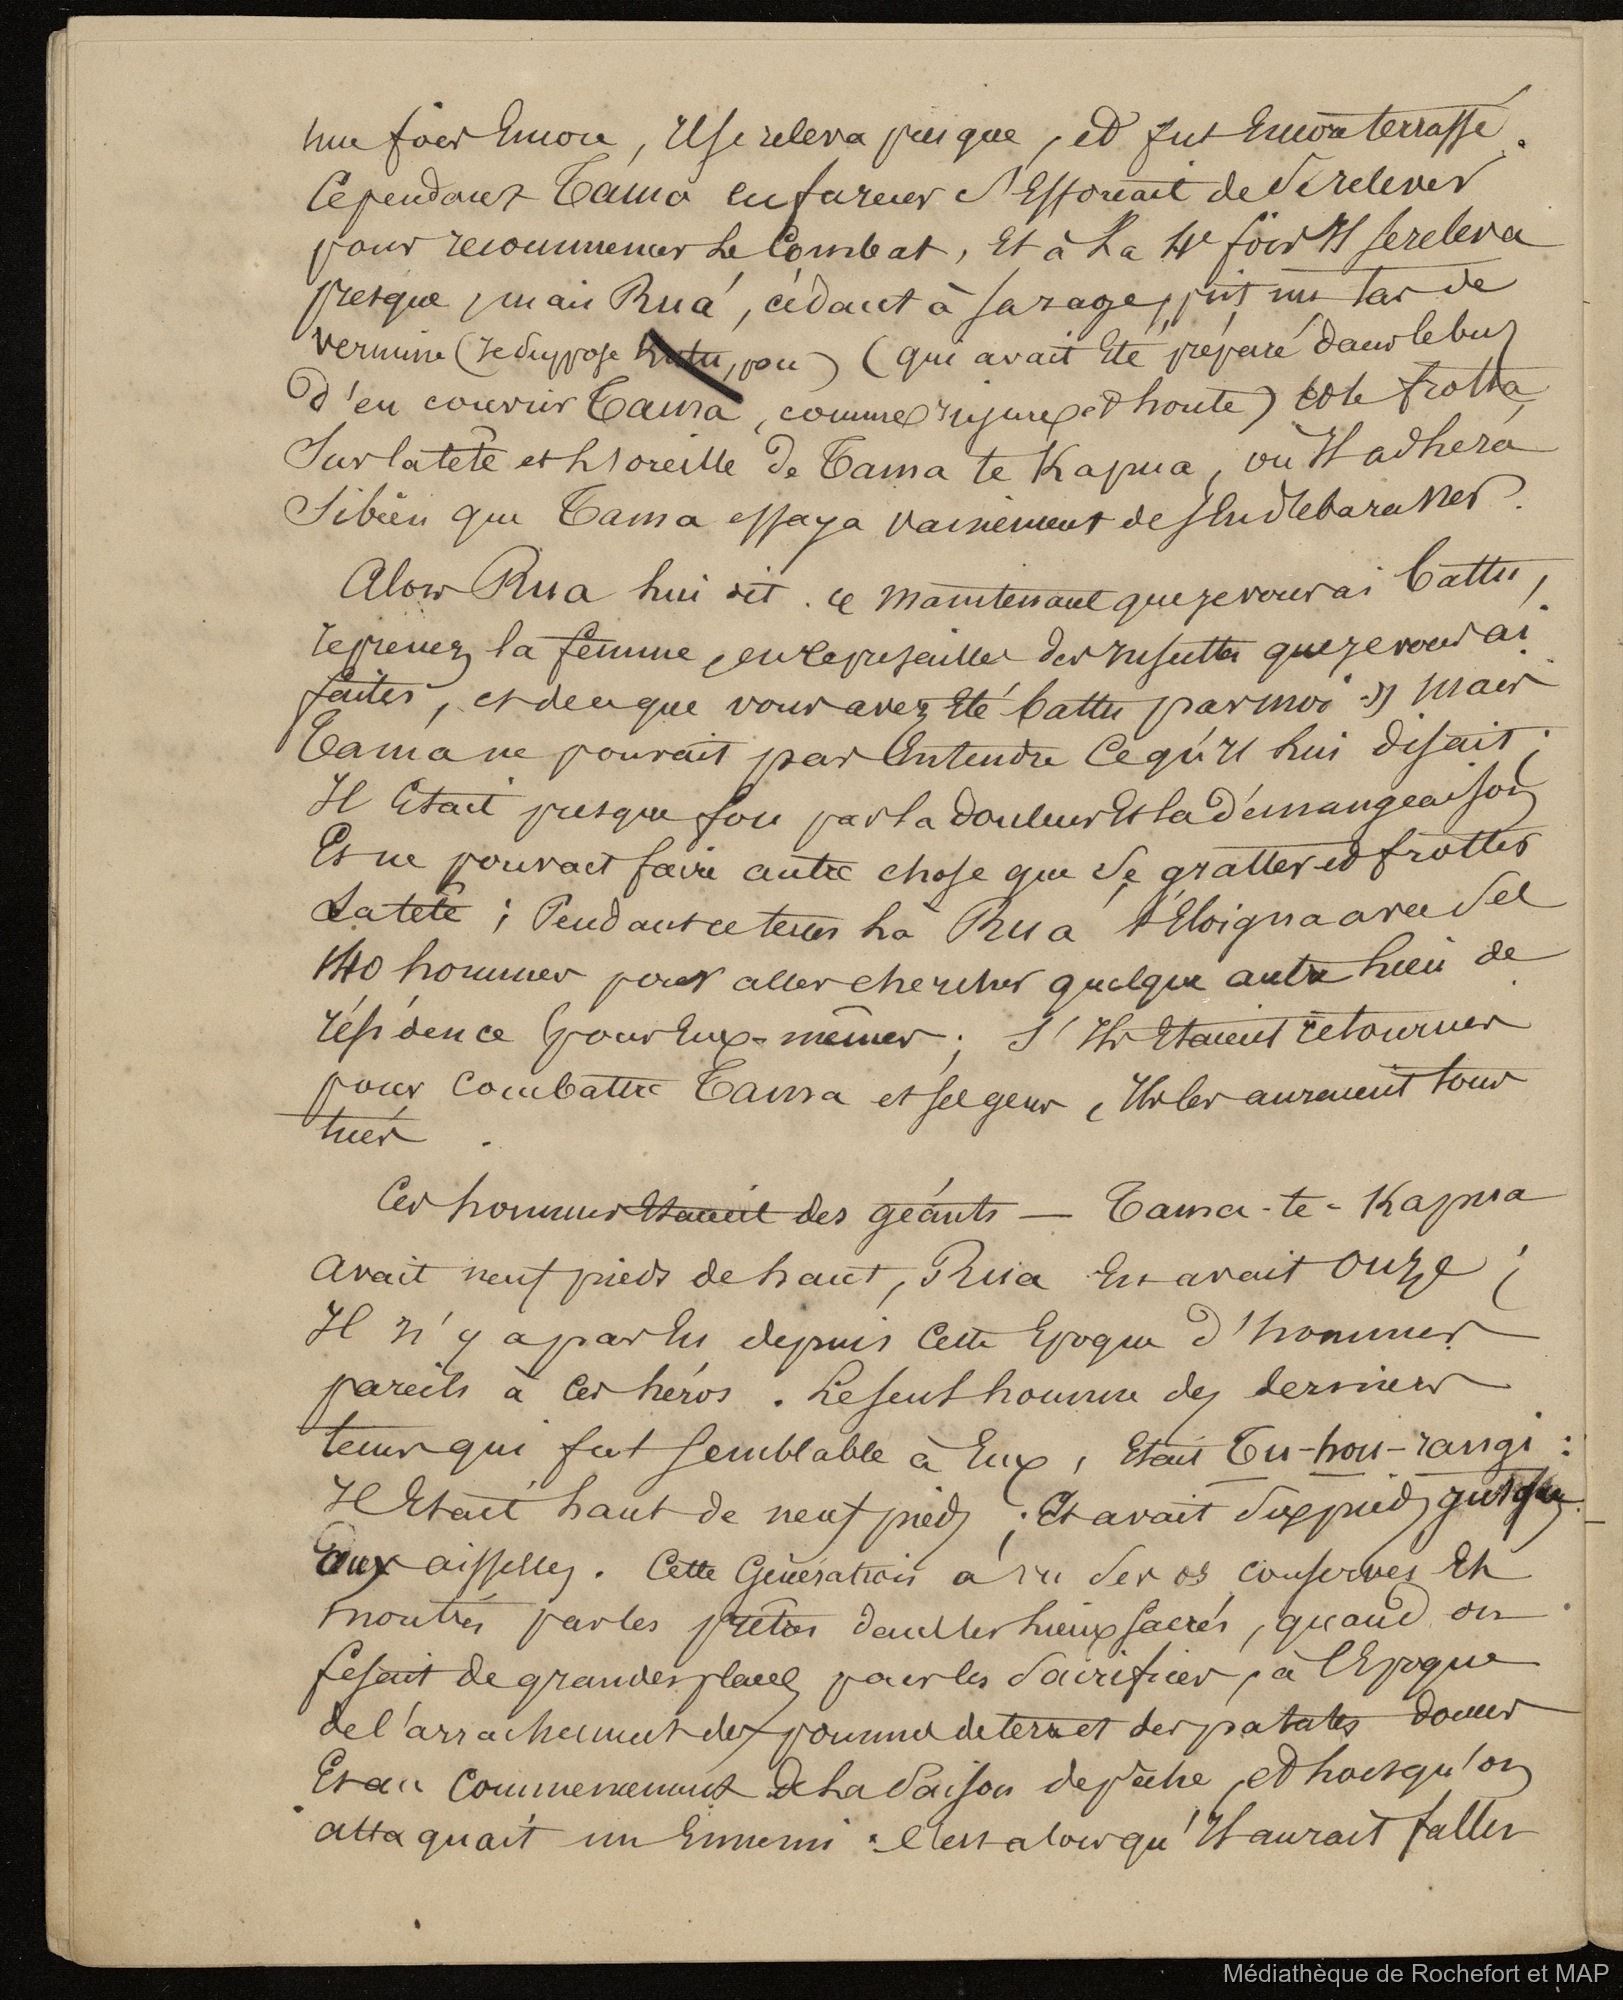 une fois encore, Il se releva presque, et fut encore terrassé.
Cependant Tama en fureur s'Efforçait de se relever
pour recommencer le Combat, Et à la 4e fois Il se releva
presque, mais Rua, cédant à sa rage, prit un tas de
vermine (Je suppose kutu, pou) (qui avait Eté préparé dans le but
d'en couvrir Tama, comme injure et honte) et le frotta
Sur la tête et l'oreille de Tama te Kapua, où Il adhéra
Si bien que Tama essaya vainement de s'En débarasser.
Alors Rua lui dit. « Maintenant que je vous ai battu,
reprenez la femme, en représailles des Insultes que je vous ai
faites, et de ce que vous avez Eté battu par moi » Mais
Tama ne pouvait pas Entendre Ce qu'Il lui disait;
Il Etait presque fou par la douleur Et la démangeaison
Et ne pouvait faire autre chose que se gratter et frotter
La tête; Pendant ce tems là Rua s'Eloigna avec ses
140 hommes pour aller chercher quelque autre lieu de
résidence pour Eux-mêmes; S'Ils Etaient retournés
pour Combattre Tama et ses gens, Ils les auraient tous
tués.
Ces hommes Etaient des géants — Tama-te-Kapua
avait neuf pieds de haut, Rua En avait onze;
Il n'y a pas Eu depuis Cette Epoque d'hommes
pareils à Ces héros. Le seul homme des derniers
tems qui fut semblable à Eux, Etait Tu-hou-rangi:
Il Etait haut de neuf pieds; Et avait six pieds jusque
aux aisselles. Cette Génération a vu ses os conservés Et
montrés par les prêtres dans les lieux sacrés, quand on
fesait de grandes places pour les Sacrifices, à l'Epoque
de l'arrachement des pommes de terre et des patates douces
Et au Commencement de la Saison de pêche, et lorsqu'on
attaquait un Ennemi. C'est alors qu'Il aurait fallu
Médiathèque de Rochefort et MAP